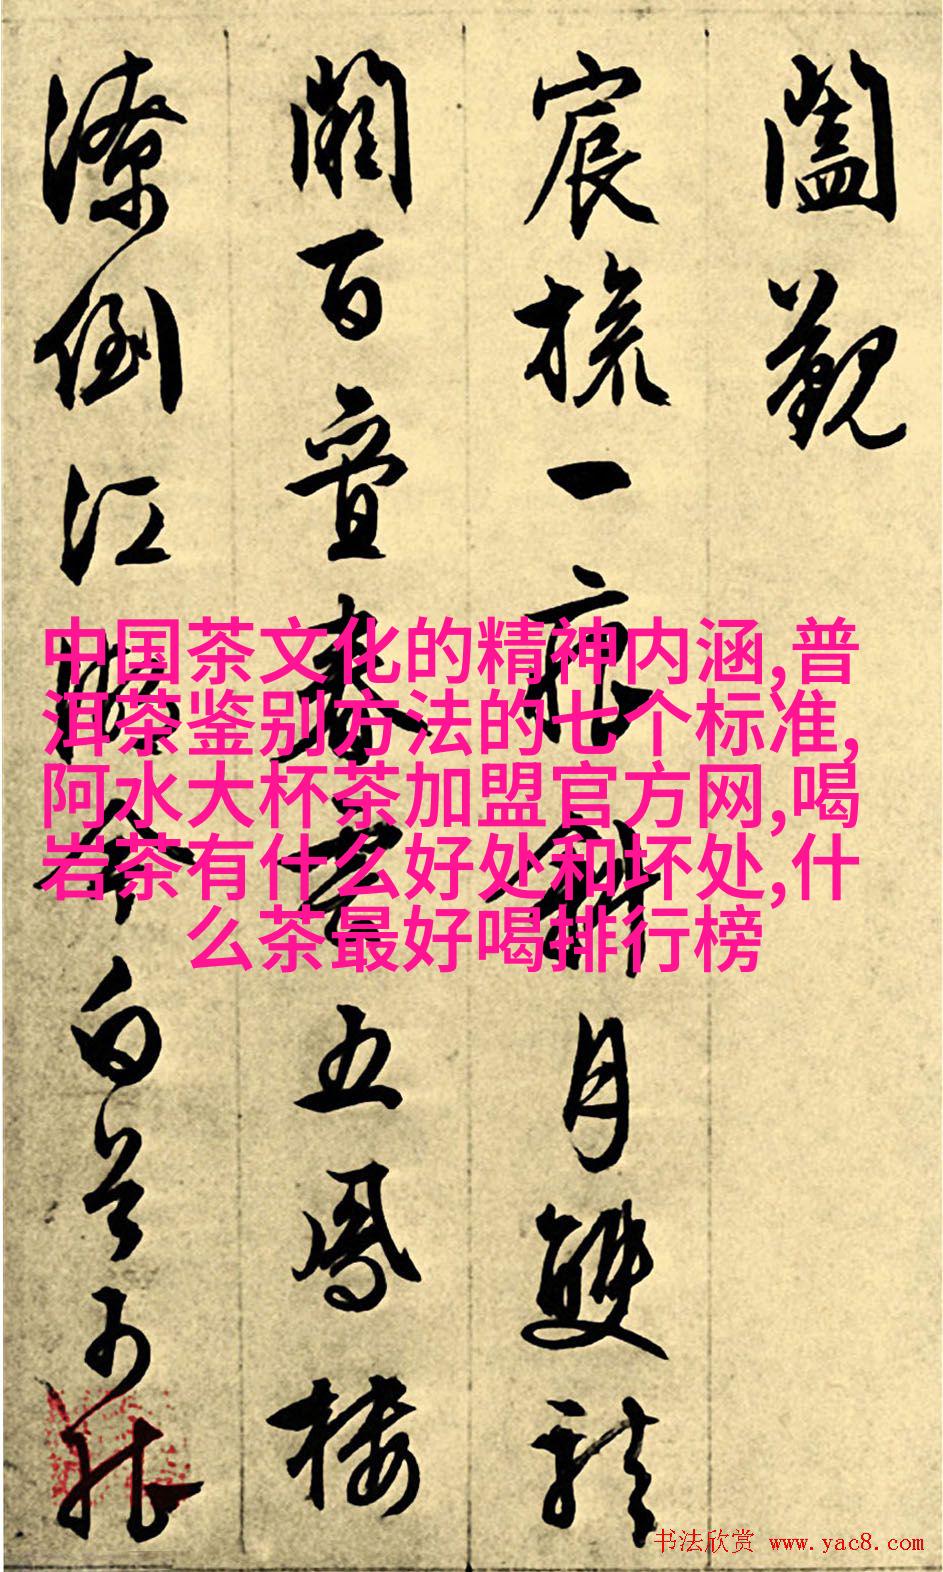 闔觀
宸旒一痕斜月雙龍
闕百疊春雲五鳳樓
潦倒江湖今白首可能
中国茶文化的精神内涵,普
洱茶鉴别方法的七个标准,
阿水大杯茶加盟官方网,喝
岩茶有什么好处和坏处,什
么茶最好喝排行榜
书法欣赏 www.yac8.com